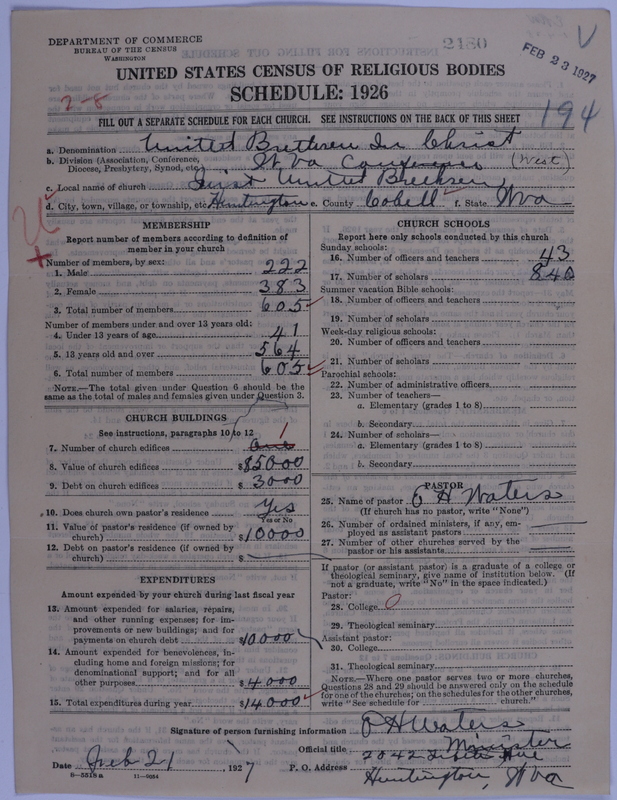 DEPARTMENT OF COMMERCE
BUREAU OF THE CENSUS
WASHINGTON
2180
FEB 23 1927
V
UNITED STATES CENSUS OF RELIGIOUS BODIES
SCHEDULE: 1926
2-8
194
FILL OUT A SEPARATE SCHEDULE FOR EACH CHURCH. SEE INSTRUCTIONS ON THE BACK OF THIS SHEET
a. Denomination United Brethren In Christ
b. Division (Association, Conference, Diocese, Presbytery, Synod, etc.) W Va Conference (West)
c. Local name of church First United Brethren
d. City, town, village, or township, etc. Huntington e. County Cabell f. State W Va
MEMBERSHIP
Report number of members according to definition of
member in your church
Number of members, by sex:
1. Male 222
2. Female 383
3. Total number of members 605
Number of members under and over 13 years old:
4. Under 13 years of age 41
5. 13 years old and over 564
6. Total number of members 605
NOTE.—The total given under Question 6 should be the
same as the total of males and females given under Question 3.
CHURCH BUILDINGS
See instructions, paragraphs 10 to 12
7. Number of church edifices one 1
8. Value of church edifices $85000
9. Debt on church edifices $3000
10. Does church own pastor's residence? Yes
Yes or No
11. Value of pastor's residence (if owned by
church) $10000
12. Debt on pastor's residence (if owned by
church) $
EXPENDITURES
Amount expended by your church during last fiscal year
13. Amount expended for salaries, repairs,
and other running expenses; for im-
provements or new buildings; and for
payments on church debt $10000
14. Amount expended for benevolences, in-
cluding home and foreign missions; for
denominational support; and for all
other purposes $4000
15. Total expenditures during year $14000
CHURCH SCHOOLS
Report here only schools conducted by this church
Sunday schools:
16. Number of officers and teachers 43
17. Number of scholars 840
Summer vacation Bible schools:
18. Number of officers and teachers
19. Number of scholars
Week-day religious schools:
20. Number of officers and teachers
21. Number of scholars
Parochial schools:
22. Number of administrative officers
23. Number of teachers—
a. Elementary (grades 1 to 8)
b. Secondary
24. Number of scholars—
a. Elementary (grades 1 to 8)
b. Secondary
PASTOR
25. Name of pastor E H Waters
(If church has no pastor, write "None")
26. Number of ordained ministers, if any, em-
ployed as assistant pastors
27. Number of other churches served by the
pastor or his assistants
If pastor (or assistant pastor) is a graduate of a college or
theological seminary, give name of institution below. (If
not a graduate, write "No" in the space indicated.)
Pastor:
28. College 0
29. Theological seminary
Assistant pastor:
30. College
31. Theological seminary
NOTE.—Where one pastor serves two or more churches,
Questions 28 and 29 should be answered only on the schedule
for one of the churches; on the schedules for the other churches,
write "See schedule for church."
Signature of person furnishing information E H Waters
Official title Minister
Date Feb 21, 1927
P. O. Address 2042 Ave
Huntington, W Va
8—5518a 11—9054